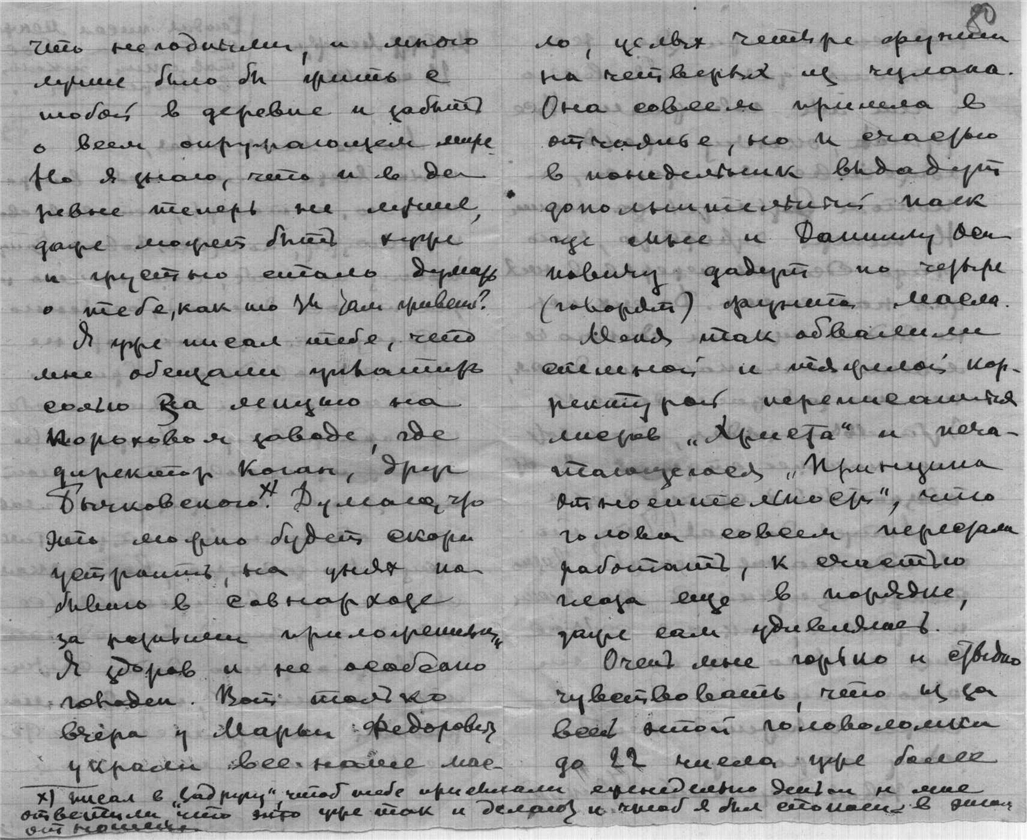 80
что негодными, и много
лучше было бы жить с
тобой в деревне и забыть
о всем окружающем мире.
Но я знаю, что и в де-
ревне теперь не лучше,
даже может быть хуже
и грустно стало думать
о тебе, как то ты там живешь?
Я уже писал тебе, что
мне обещали уплатить
солью за лекцию на
пороховом заводе, где
директор Коган, друг
Бычковского x). Думаю, что
это можно будет скоро
устроить, на днях по-
бываю в совнархозе
за
Я здоров и не особенно
голоден. Вот только
вчера у Марьи Федоровны
украли все наше мас-
ло, целых четыре фунта
на четверых из чулана.
Она совсем пришла в
отчаянье, но к счастью
в понедельник выдадут
дополнительный паек
где мне и Даниилу Оси-
повичу дадут по четыре
(говорят) фунта масла.
Меня так обвалили
спешной и тяжелой кор-
ректурой, переписанных
листов „Христа“ и печа-
тающегося „Принципа
относительности“, что
голова совсем перестала
работать, к счастью
глаза еще в порядке,
даже сам удивляюсь.
Очень мне горько и стыдно
чувствовать, что из за
всей этой головоломки
до 22 числа уже более
x) писал в „Задругу“ чтоб тебе присылали еженедельно деньги и мне
ответили, что это уже так и делают и чтоб я был спокоен в этом
отношении.